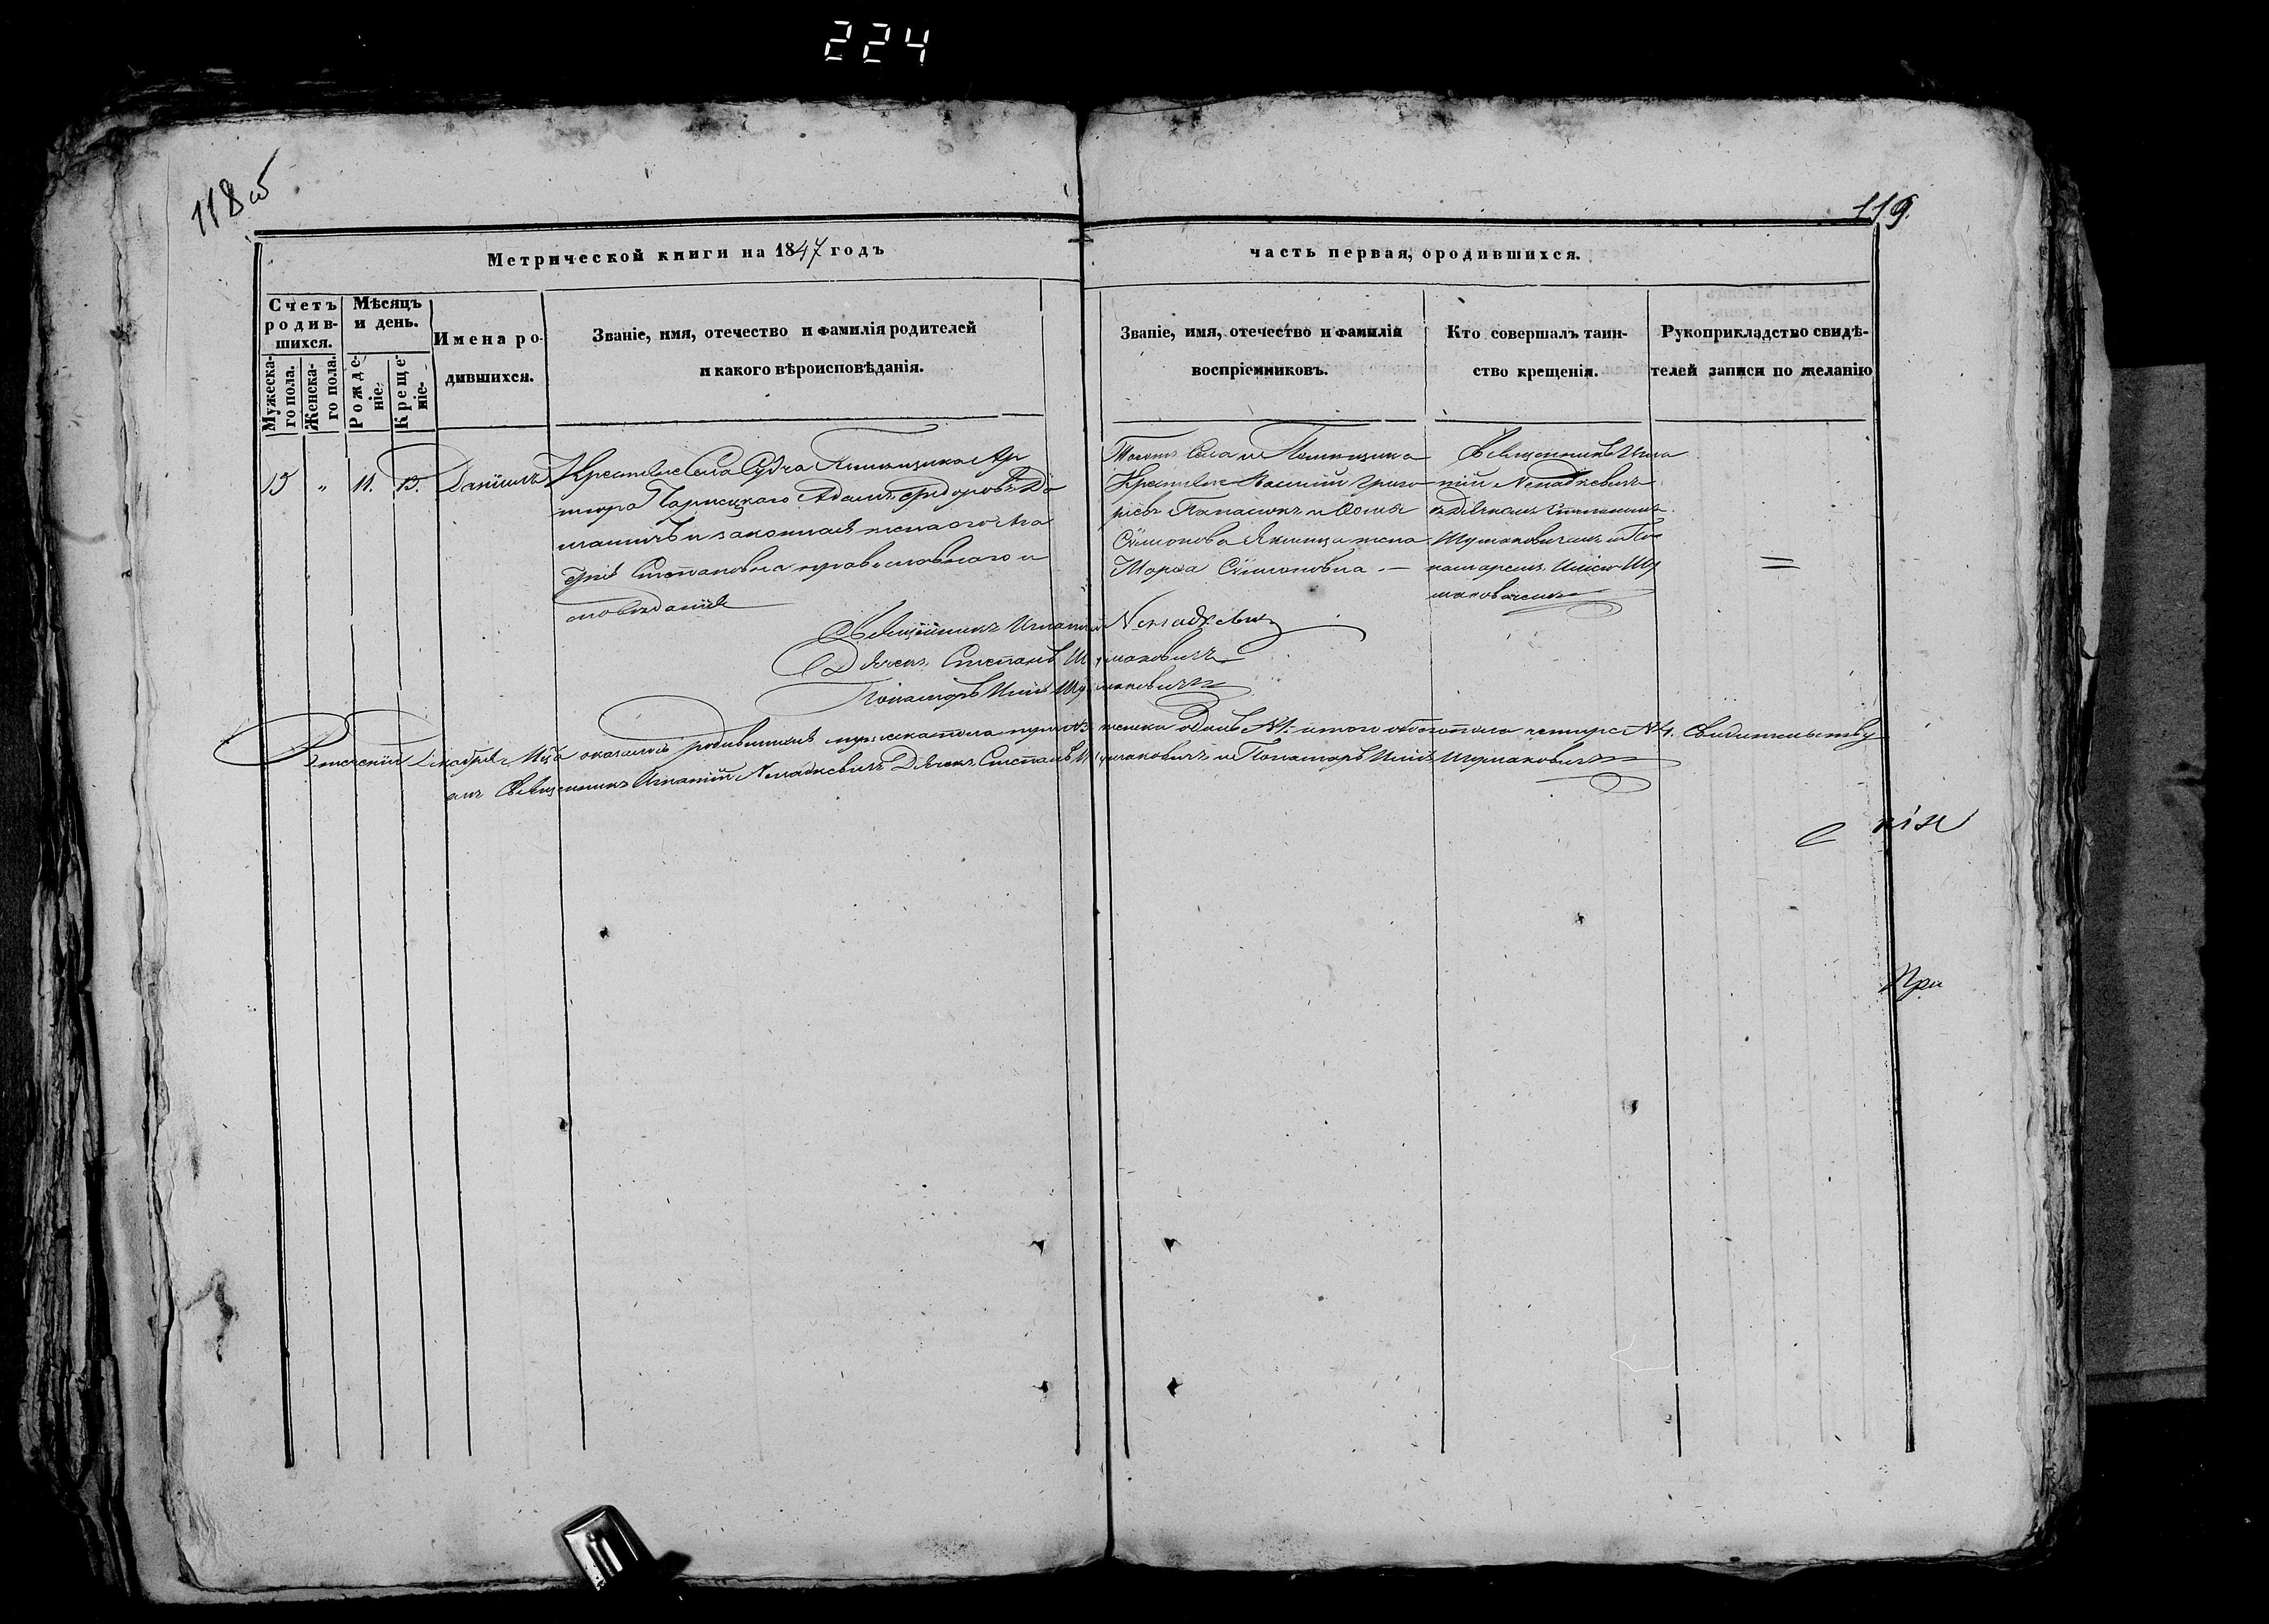 224
118 об
119.
Метрической книги на 1847 годъ
часть первая, ородившихся.
Счетъ родив-шихся.
Мужеска-го пола.
Женска-го пола.
Мѣсяцъ и день.
Рожде-ніе.
Креще-ніе.
Имена ро-
дившихся.
Званіе, имя, отечество и фамилія родителей
и какого вѣроисповѣданія.
Званіе, имя, отечество и фамилія
воспріемниковъ.
Кто совершалъ таин-
ство крещенія.
Рукоприкладство свидѣ-
телей записи по желанію
13 " 11. 13. Даніилъ
Села Помѣщика Ар
тура Адамъ Федоровъ
и законная жена его Ага
Степановна православнаго и
сповѣданія
Тогожъ Села и Помѣщика
Василий Григо
рьевъ и
Симонова жена
Марфа Симоновна —
Священникъ Игна
тий Ненадкевичъ
съ Дьячкомъ Стефаномъ
Шумаковичемъ и По
намаремъ Шу
маковичемъ
=
Священникъ Игнатий Ненадкевичъ
Дьячекъ Стефанъ Шумаковичъ
Понамарь Шумаковичъ
Втеченіи Декабря М-ца оказалось родившихся мужеска пола три №3 женска одна №1. итого обоего пола четыре №4. Свидительству
емъ Священникъ Игнатий Ненадкевичъ Дьячекъ Стефанъ Шумаковичъ и Понамарь Шумаковичъ
нія
При